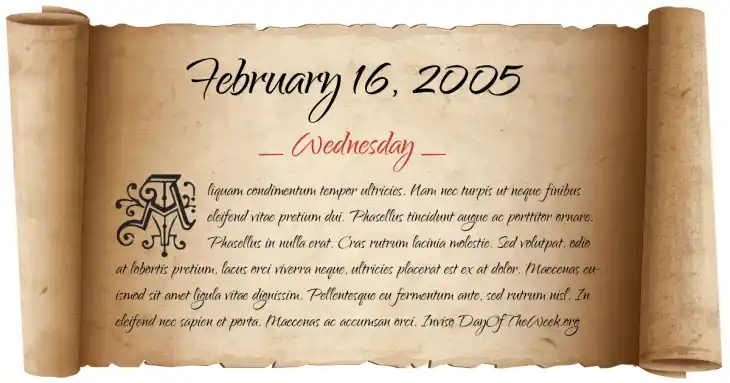 February 16, 2005
__ Wednesday __
Aliquam condimentum tempor ultricies. Nam nec turpis ut neque finibus
eleifend vitae pretium dui. Phasellus tincidunt augue ac porttitor ornare.
Phasellus in nulla erat. Cras rutrum lacinia molestie. Sed volutpat, odio
at lobortis pretium, lacus orci viverra neque, ultricies placerat est ex at dolor. Maecenas eu-
ismod sit amet ligula vitae dignissim. Pellentesque eu fermentum ante, sed rutrum nisl. In
eleifend nec sapien et porta. Maecenas ac accumsan orci. Inviso DayOfTheWeek.org